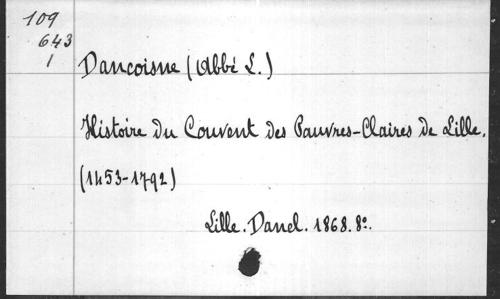 109
643
1
Dancoisne (Abbé L.)
Histoire du Couvent des Pauvres-Claires de Lille.
(1453-1792)
Lille. Danel. 1868. 8º.